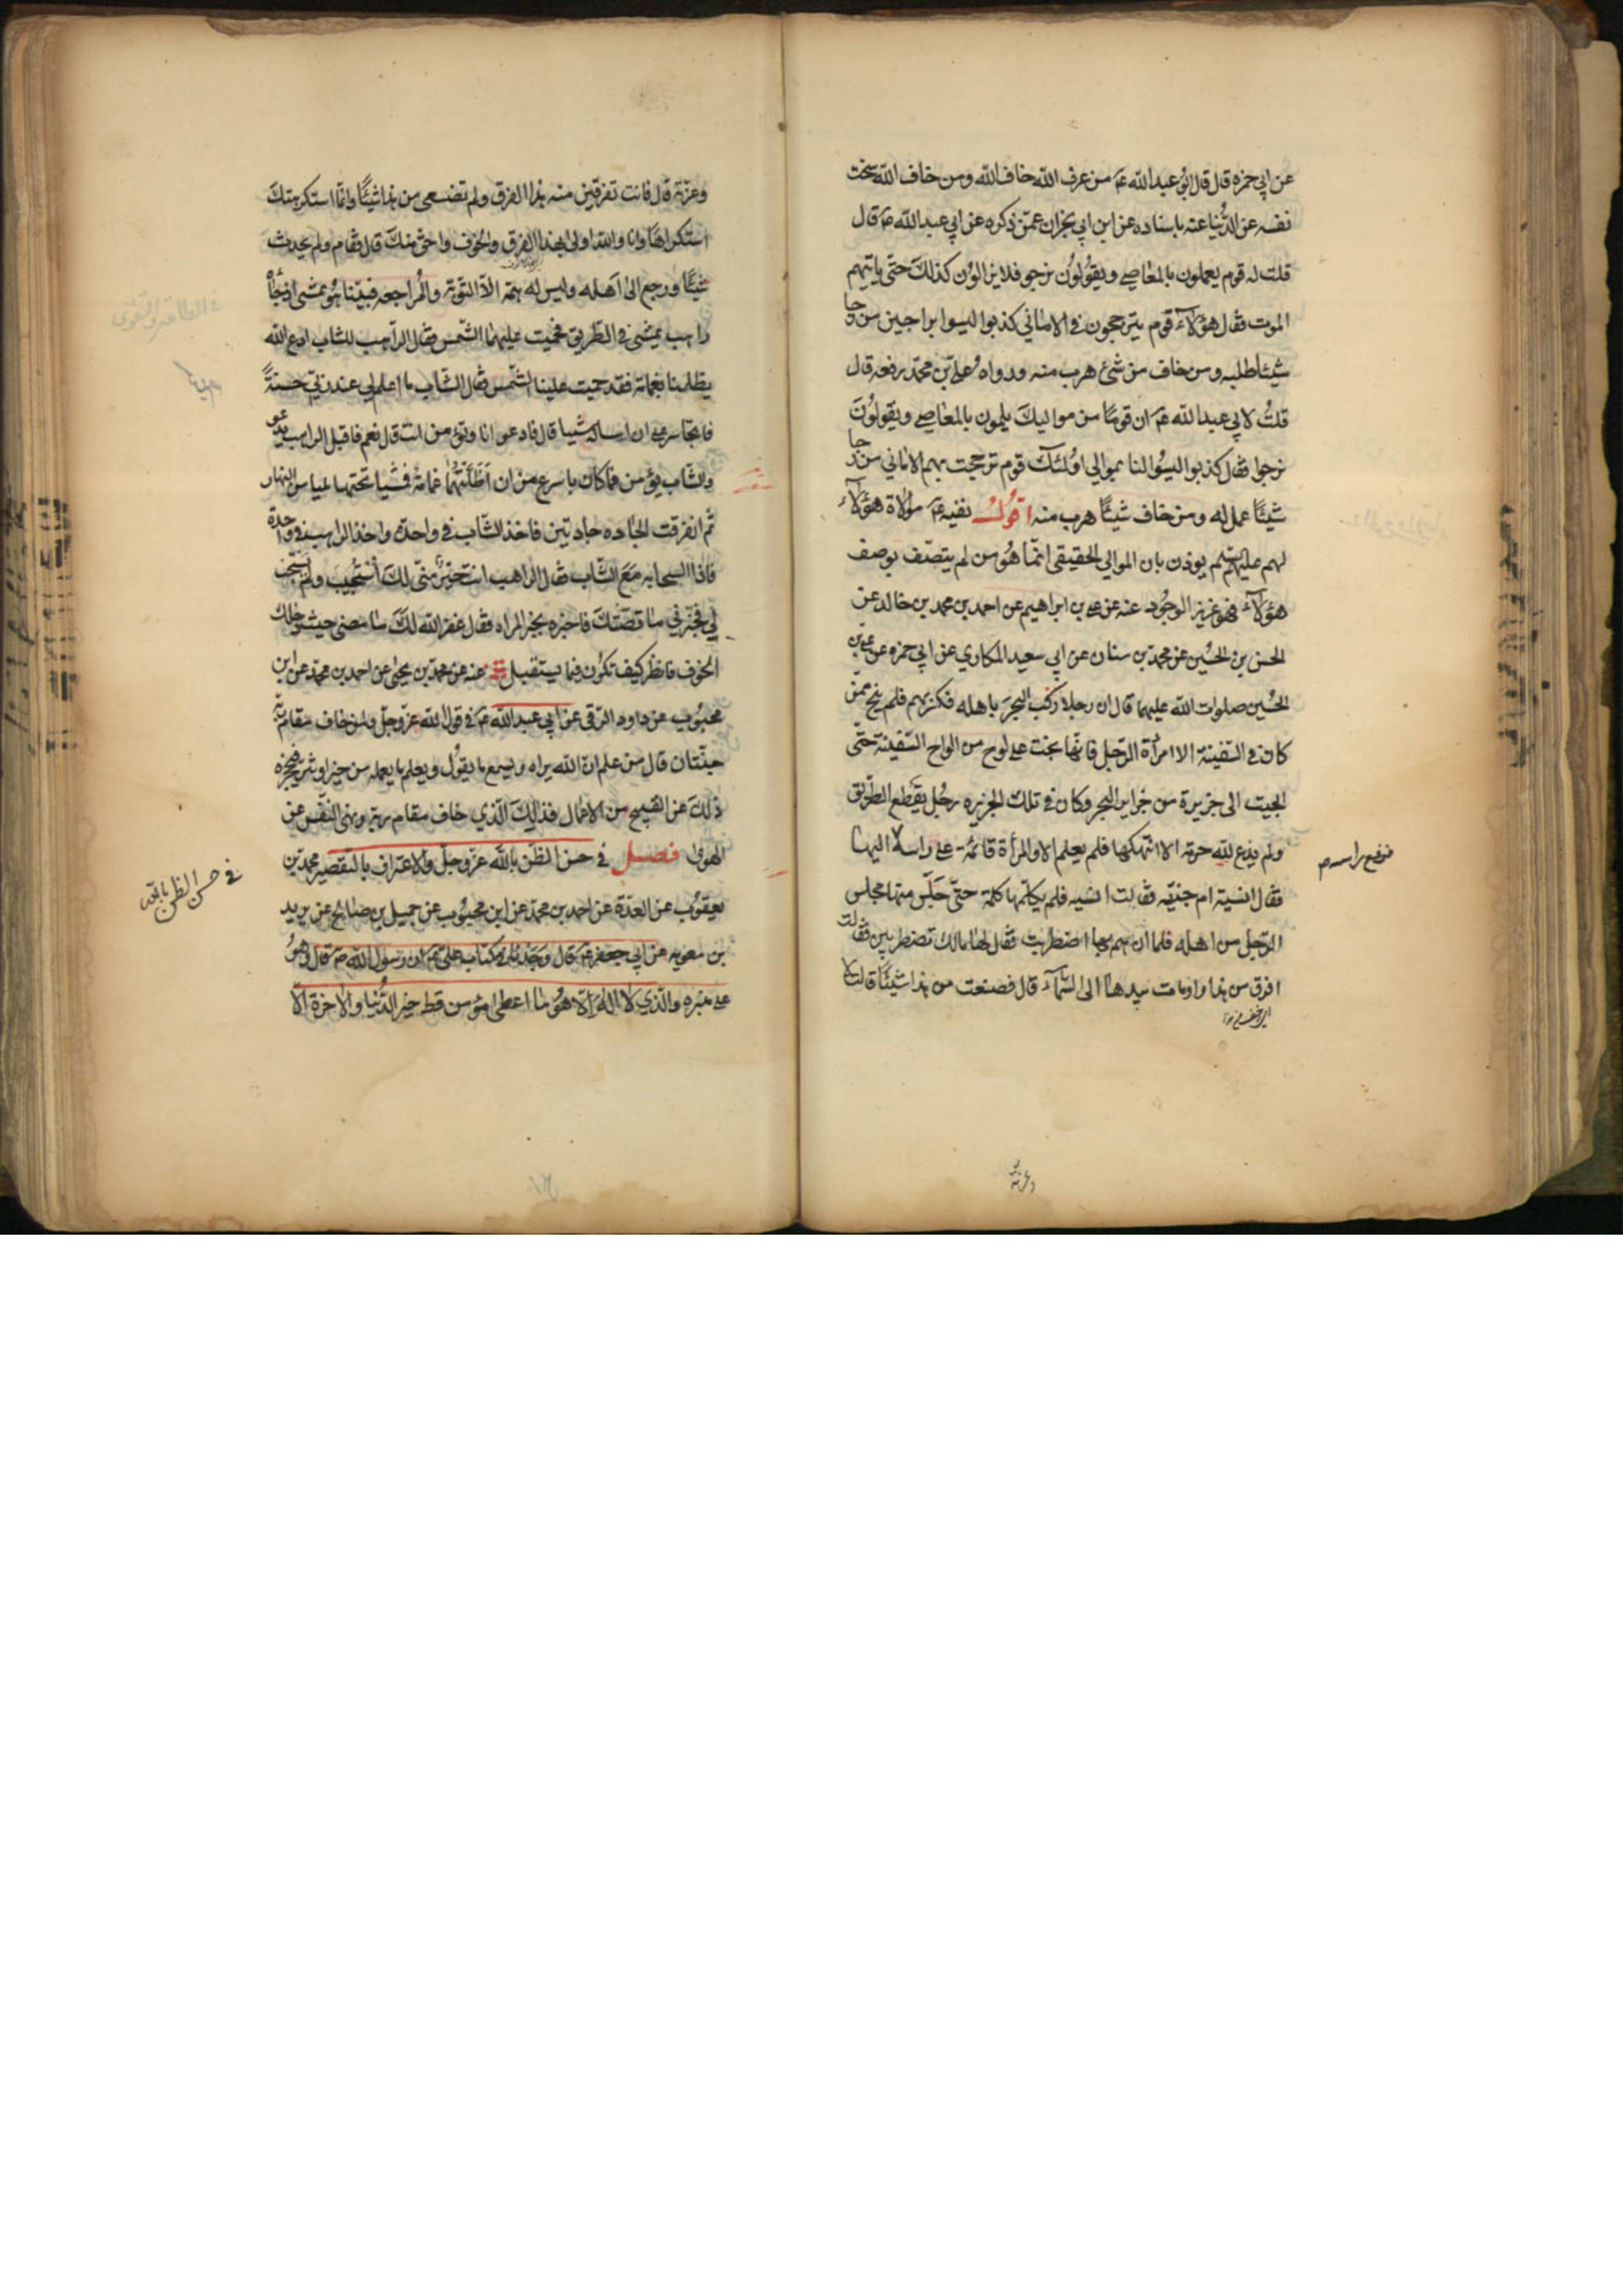 عن ابي حمزه قال قال ابو عبد الله ع من عرف الله خاف الله ومن خاف الله سخت
نفسه عن الدنيا عنه باسناده عن ابن ابي نجران عمن ذكره عن ابي عبد الله ع قال
قلت له قوم يعملون بالمعاصي ويقولون نرجو فلا يزالون كذلك حتى ياتيهم
الموت فقال هؤلاء قوم يترجحون في الاماني كذبوا ليسوا براجين من رجا
شيئا طلبه ومن خاف من شئ هرب منه ورواه علي بن محمد رفعه قال
قلت لابي عبد الله ع ان قوما من مواليك يلمون بالمعاصي ويقولون
نرجوا فقال كذبوا ليسوا لنا بموالي اولئك قوم ترجحت بهم الاماني من رجا
شيئا عمل له ومن خاف شيئا هرب منه اقول نفيه ع مولاة هؤلاء
لهم عليهم يوذن بان الموالي الحقيقي انما هو من لم يتصف بوصف
هؤلاء فهو عزيز الوجود عنه عن علي بن ابراهيم عن احمد بن محمد بن خالد عن
الحسن بن الحسين عن محمد بن سنان عن ابي سعيد المكاري عن ابي حمزه عن علي بن
الحسين صلوات الله عليهما قال ان رجلا ركب البحر باهله فكسر بهم فلم ينج ممن
كان في السفينة الا امرأة الرجل فانها نجت على لوح من الواح السفينة حتى
الجيت الى جزيرة من جزاير البحر وكان في تلك الجزيره رجل يقطع الطريق
ولم يدع لله حرمة الا انتهكها فلم يعلم الا والمرأة قائمة على راسه اليها
فرفع راسه
فقال انسية ام جنيه فقالت انسيه فلم يكلمها كلمة حتى جلس منها مجلس
الرجل من اهله فلما ان هم بها اضطربت فقال لها مالك تضطربين فقالت
افرق من هذا واومات بيدها الى السماء قال فصنعت من هذا شيئا قالت لا
وعزته
وعزته قال فانت تفرقين منه هذا الفرق ولم تصنعي من هذا شيئا وانما استكرهتك
استكراها فانا والله اولى بهذا الفرق والخوف واحق منك قال فقام ولم يحدث
شيئا ورجع الى اهله وليس له همة الا التوبة والمراجعه فبينا هو يمشي اذ جاه
راهب يمشي في الطريق فحميت عليهما الشمس فقال الراهب للشاب ادع الله
يظلنا بغمامة فقد حميت علينا الشمس فقال الشاب ما اعلم لي عند ربي حسنة
فاتجاسر على ان اساله شيا قال فادعو انا وتؤمن انت قال نعم فاقبل الراهب يدعو
والشاب يؤمن فما كان باسرع من ان اظلتهما غمامة فمشيا تحتها مليا من النهار
ثم انفرقت الجاده جادتين فاخذ الشاب في واحدة واخذ الراهب في واحدة
فاذا السحابه مع الشاب فقال الراهب انت خير مني لك استجيب ولم يستجب
لي فخبرني ما قصتك فاخبره بخبر المراه فقال غفر الله لك ما مضى حيث دخلك
الخوف فانظر كيف تكون فيما يستقبل عنه عن محمد بن يحيى عن احمد بن محمد عن ابن
محبوب عن داود الرقي عن ابي عبد الله ع في قول الله عز وجل ولمن خاف مقام ربه
جنتان قال من علم ان الله يراه ويسمع ما يقول ويعلم ما يعمله من خير او شر فيحجزه
ذلك عن القبيح من الاعمال فذلك الذي خاف مقام ربه ونهى النفس عن
الهوى فصل في حسن الظن بالله عز وجل والاعتراف بالتقصير محمد بن
في حسن الظن بالله
يعقوب عن العدة عن احمد بن محمد عن ابن محبوب عن جميل بن صالح عن بريد
بن معويه عن ابي جعفر ع قال وجدنا في كتاب علي ع ان رسول الله ص قال وهو
على منبره والذي لا اله الا هو ما اعطى مؤمن قط خير الدنيا والاخرة الا